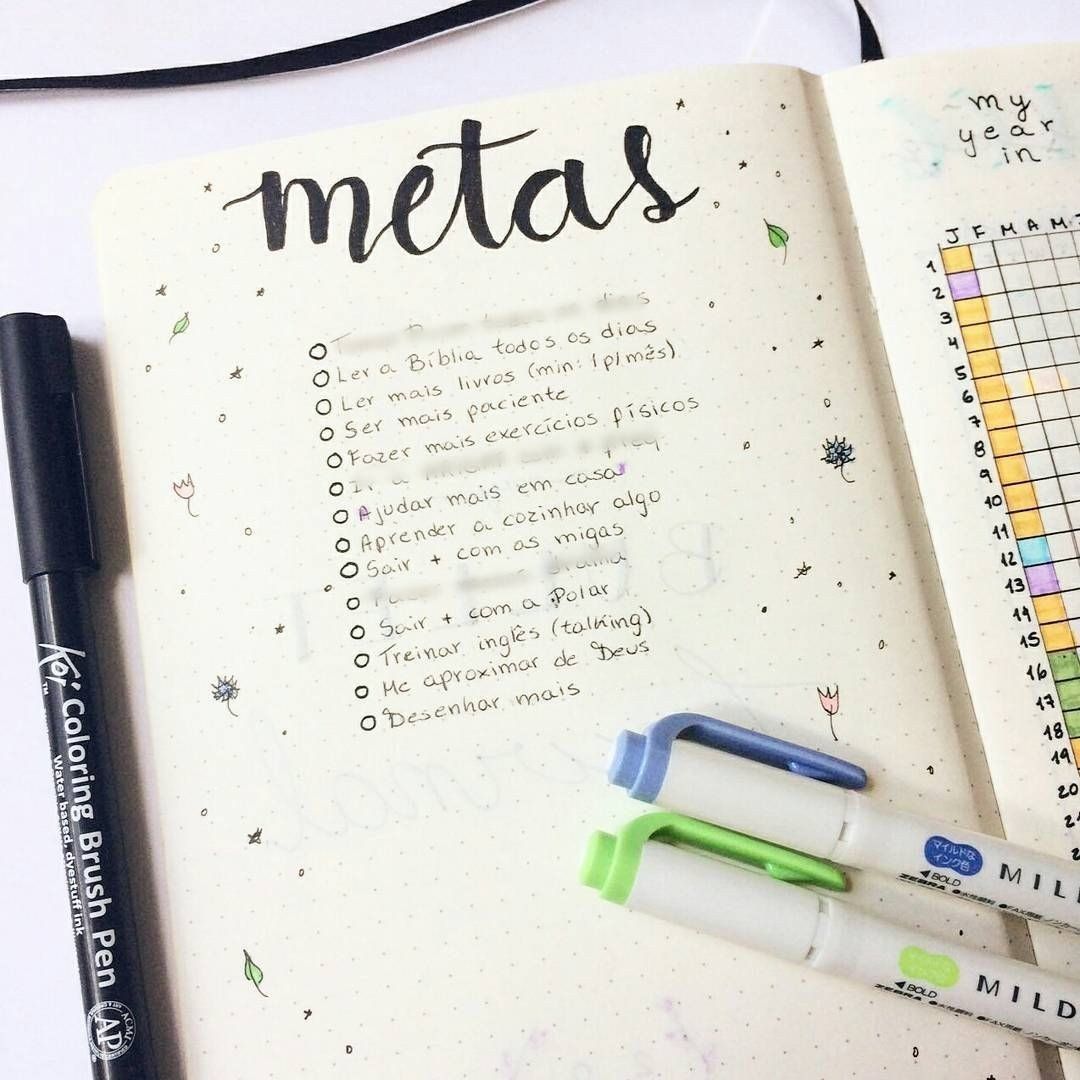 metas
Ler a Bíblia todos os dias
Ler mais livros (min: 1p/mês)
Ser mais paciente
Fazer mais exercícios físicos
Ajudar mais em casa
Aprender a cozinhar algo
Sair + com as migas
Sair + com a Polar
Treinar inglês (talking)
Me aproximar de Deus
Desenhar mais
my
year
in
J F M A M J
1
2
3
4
5
6
7
8
9
10
11
12
13
14
15
16
17
18
19
20
Koi Coloring Brush Pen
TM
Water based, dyestuff ink
ACMI
AP
マイルドな
インク色
BOLD
ZEBRA
MILD
BOLD
ZEBRA
MILD